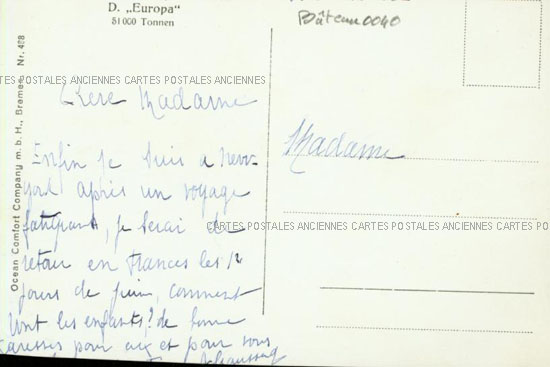 D. „Europa"
51000 Tonnen
Bâteau 0040
Ocean Comfort Company m. b. H., Bremen, Nr. 428
CARTES POSTALES ANCIENNES CARTES POSTALES ANCIENNES
Chere Madame
Enfin je suis a New-
york après un voyage
fatigant, je serai de
retour en Frances les 12
jours de juin, comment
vont les enfants? de bonne
caresses pour eux et pour vous
Madame
CARTES POSTALES ANCIENNES CARTES POSTALES ANCIENNES CARTES